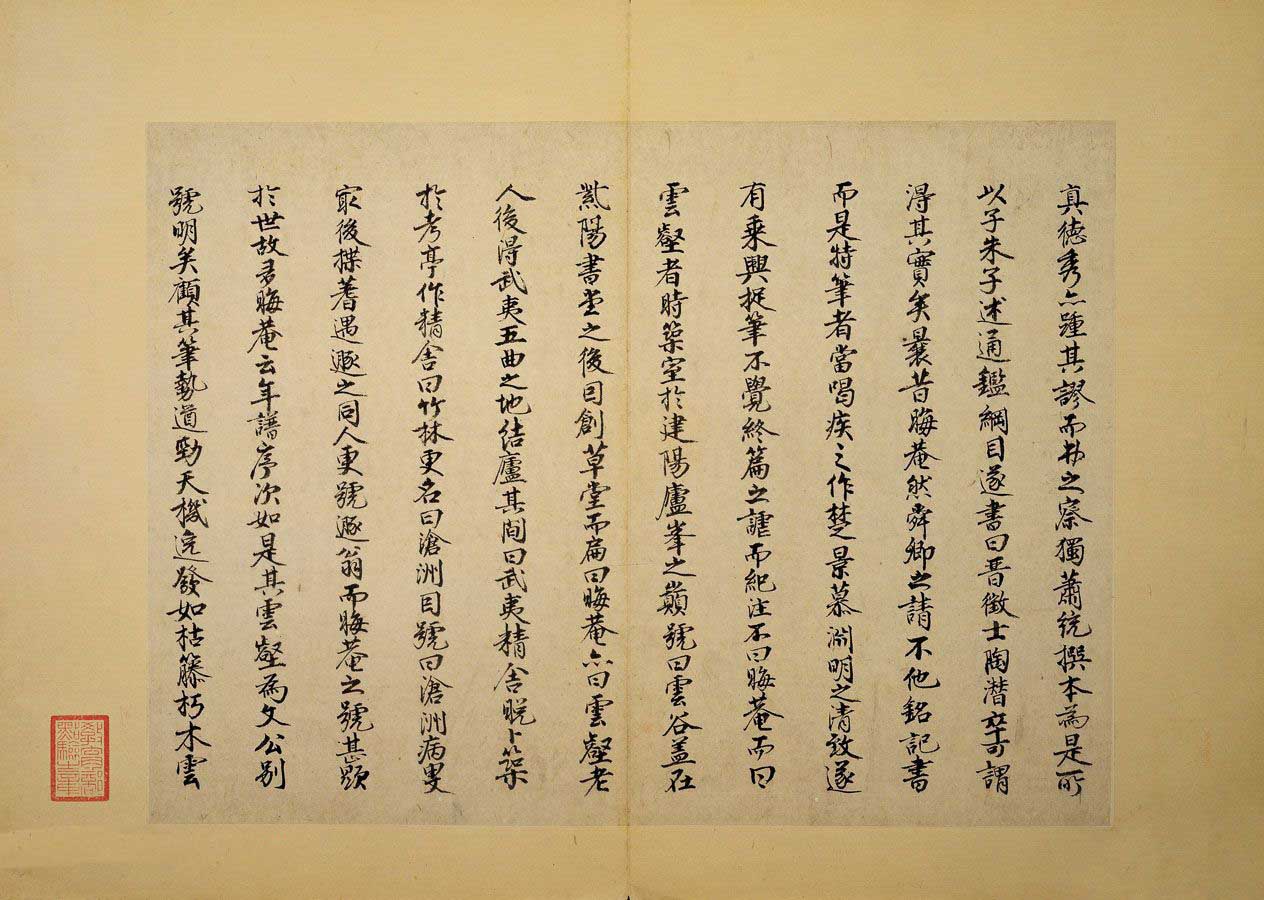 真德秀亦踵其謬而梓之察獨蕭統撰本為是所
以子朱子述通鑑綱目遂書曰晉徵士陶潛卒可謂
得其實矣曩昔晦菴然舜卿之請不他銘記書
而是特筆者當喝疾之作楚景慕淵明之清致遂
有乗興捉筆不覺終篇之謔而紀注不曰晦菴而曰
雲壑者時築室於建陽廬峯之巔號曰雲谷盖在
紫陽書堂之後因創草堂而扁曰晦菴亦曰雲壑老
人後得武夷五曲之地結廬其間曰武夷精舍晚卜築
於考亭作精舍曰竹林更名曰滄洲因號曰滄洲病叟
冣後揲蓍遇遯之同人更號遯翁而晦菴之號甚顕
於世故多晦菴云年譜序次如是其雲壑為文公別
號明矣顧其筆勢遒勁天機逸發如枯籐朽木雲